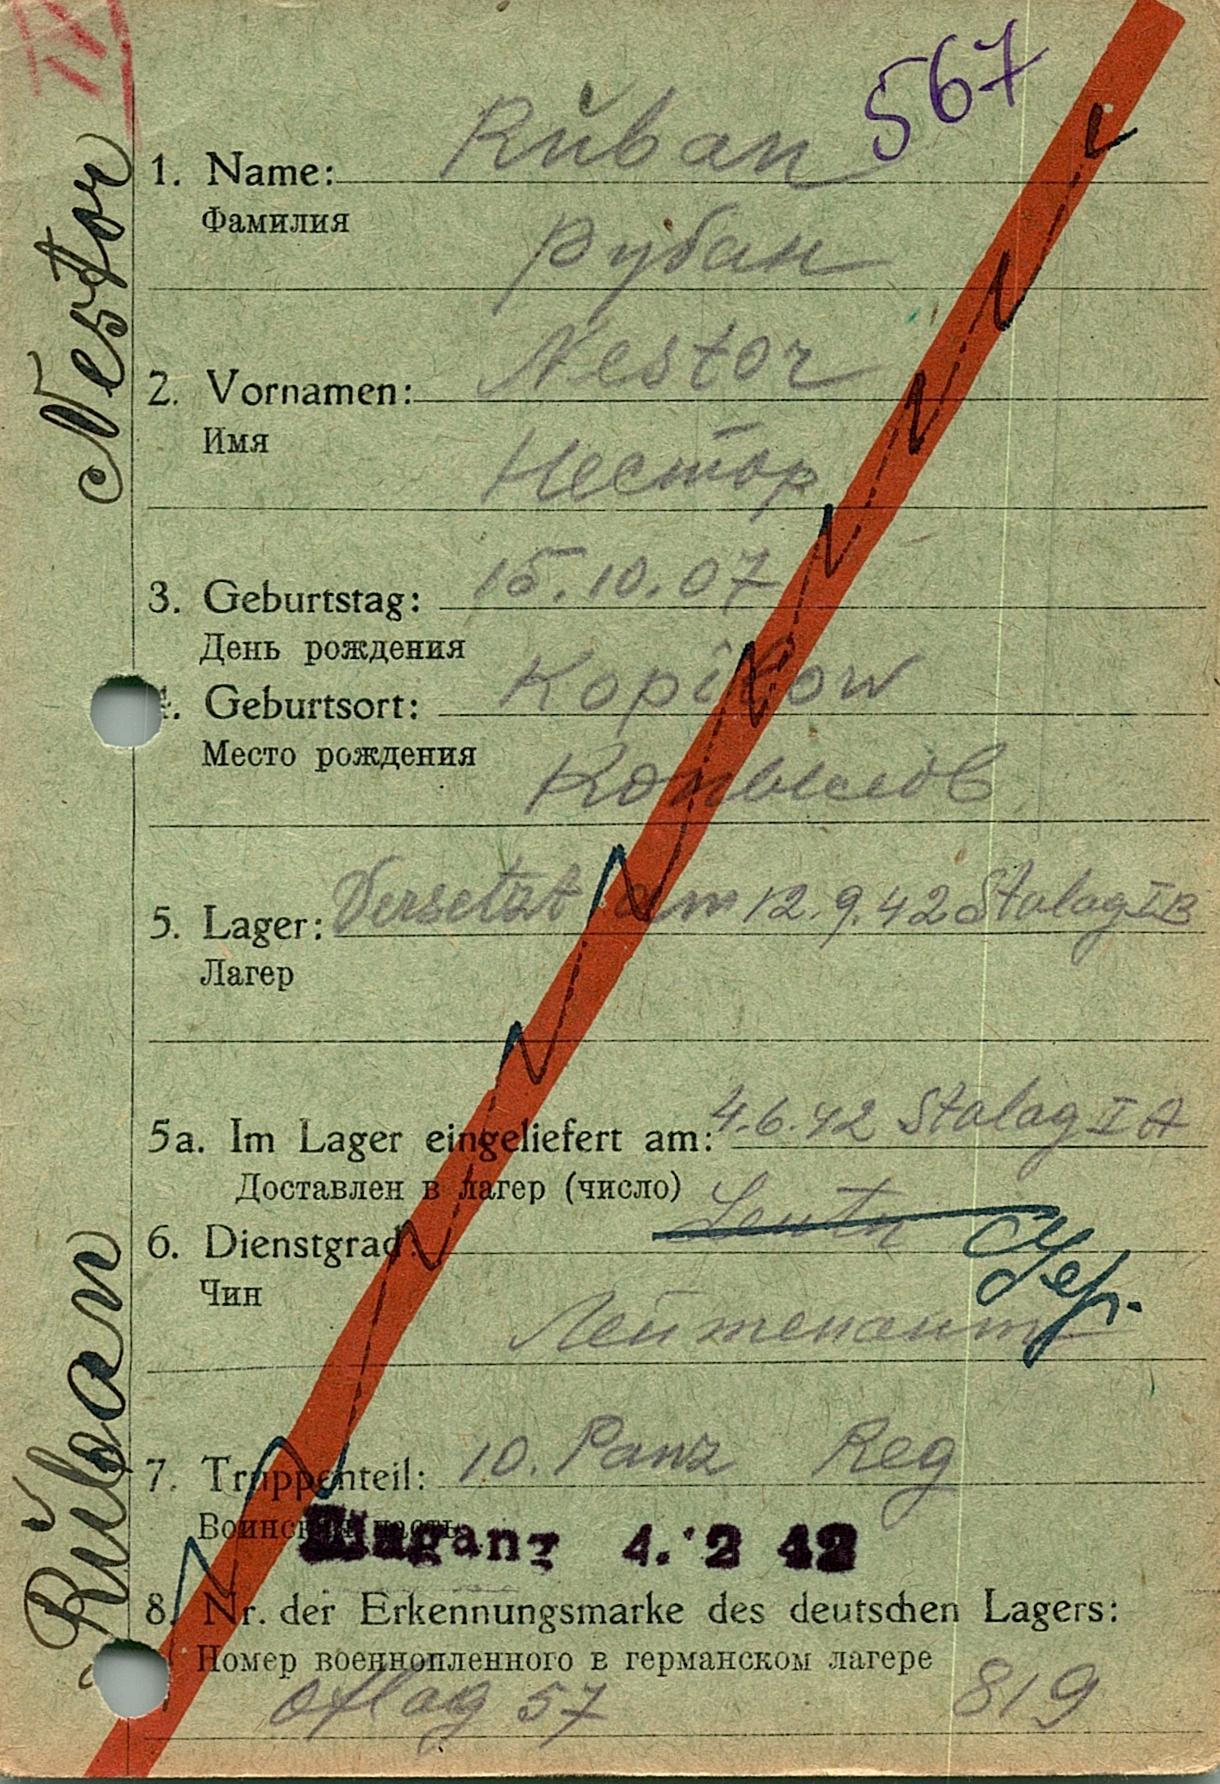 IV
567
Nestor
1. Name: Rŭban
Фамилия
Рубан
2. Vornamen: Nestor
Имя
Нестор
3. Geburtstag: 15.10.07
День рождения
4. Geburtsort: Kopilow
Место рождения
Копылов
5. Lager: Versetzt am 12.9.42 Stalag IB
Лагер
5a. Im Lager eingeliefert am: 4.6.42 Stalag I A
Доставлен в лагер (число)
6. Dienstgrad: Leutn
Чин
Лейтенант
Rŭban
7. Truppenteil: 10. Panz Reg
Воинская часть
4. 2 42
8. Nr. der Erkennungsmarke des deutschen Lagers:
Номер военнопленного в германском лагере
Oflag 57 819